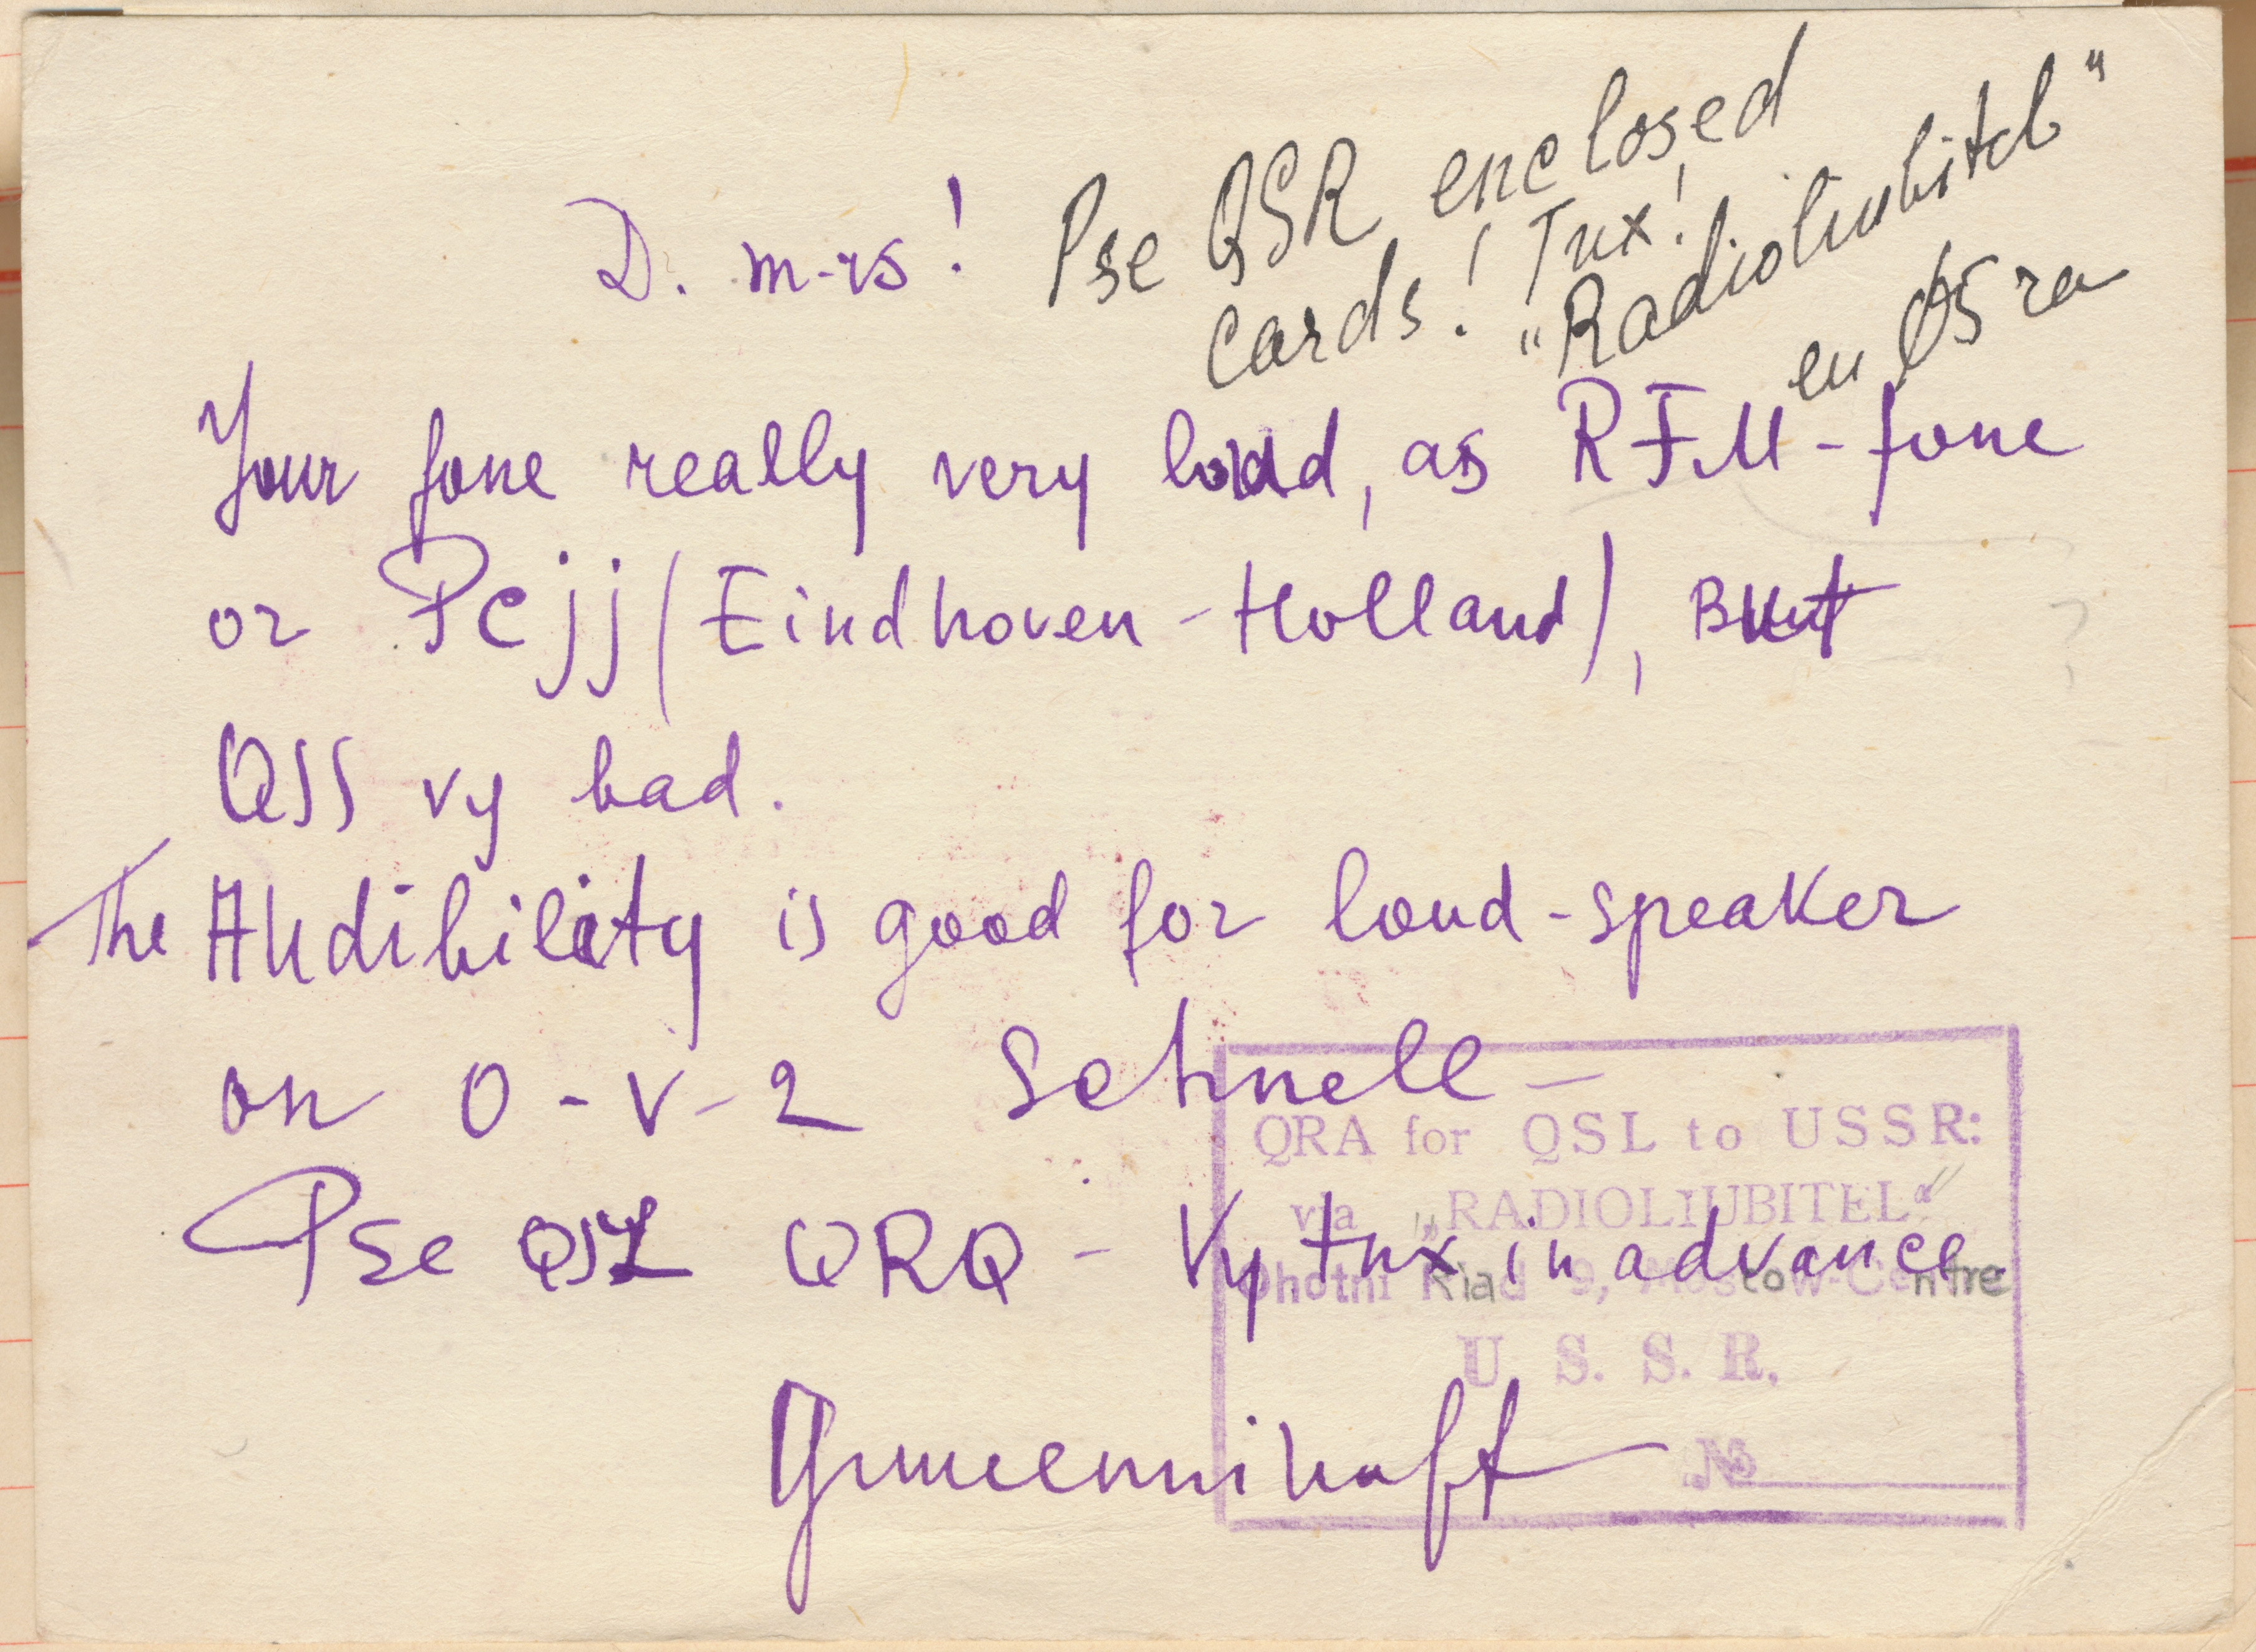 D. m-rs!
Pse QSR enclosed
cards! Tnx!
„Radioliubitel"
eu 05ra
Your fone really very loud, as RFM-fone
or Pcjj (Eindhoven-Holland), But
QSS vy bad.
The Audibility is good for loud-speaker
on 0-V-2 Schnell –
Pse QSL QRQ - Vy tnx in advance.
QRA for QSL to USSR:
via „RADIOLIUBITEL"
Ohotni Riad 9, Moscow-Centre
U. S. S. R.
№